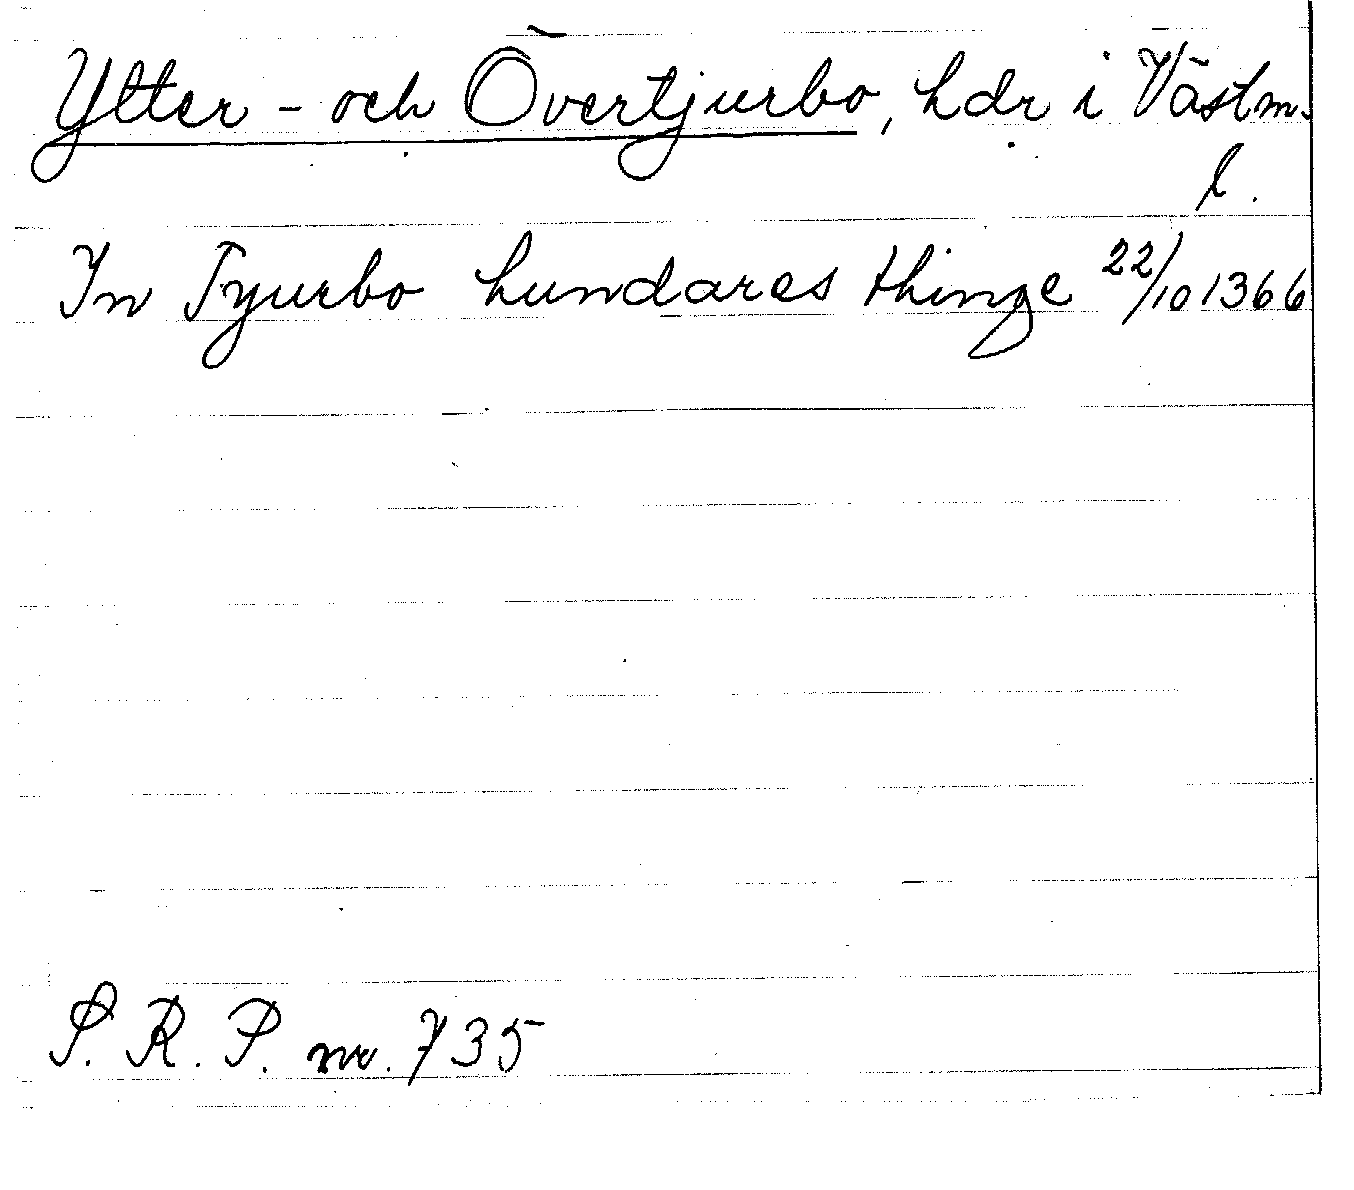 Ytter- och Övertjurbo, hdr i Västm.
l.
In Tyurbo hundares thinge 22/10 1366
S. R. P. nr. 735